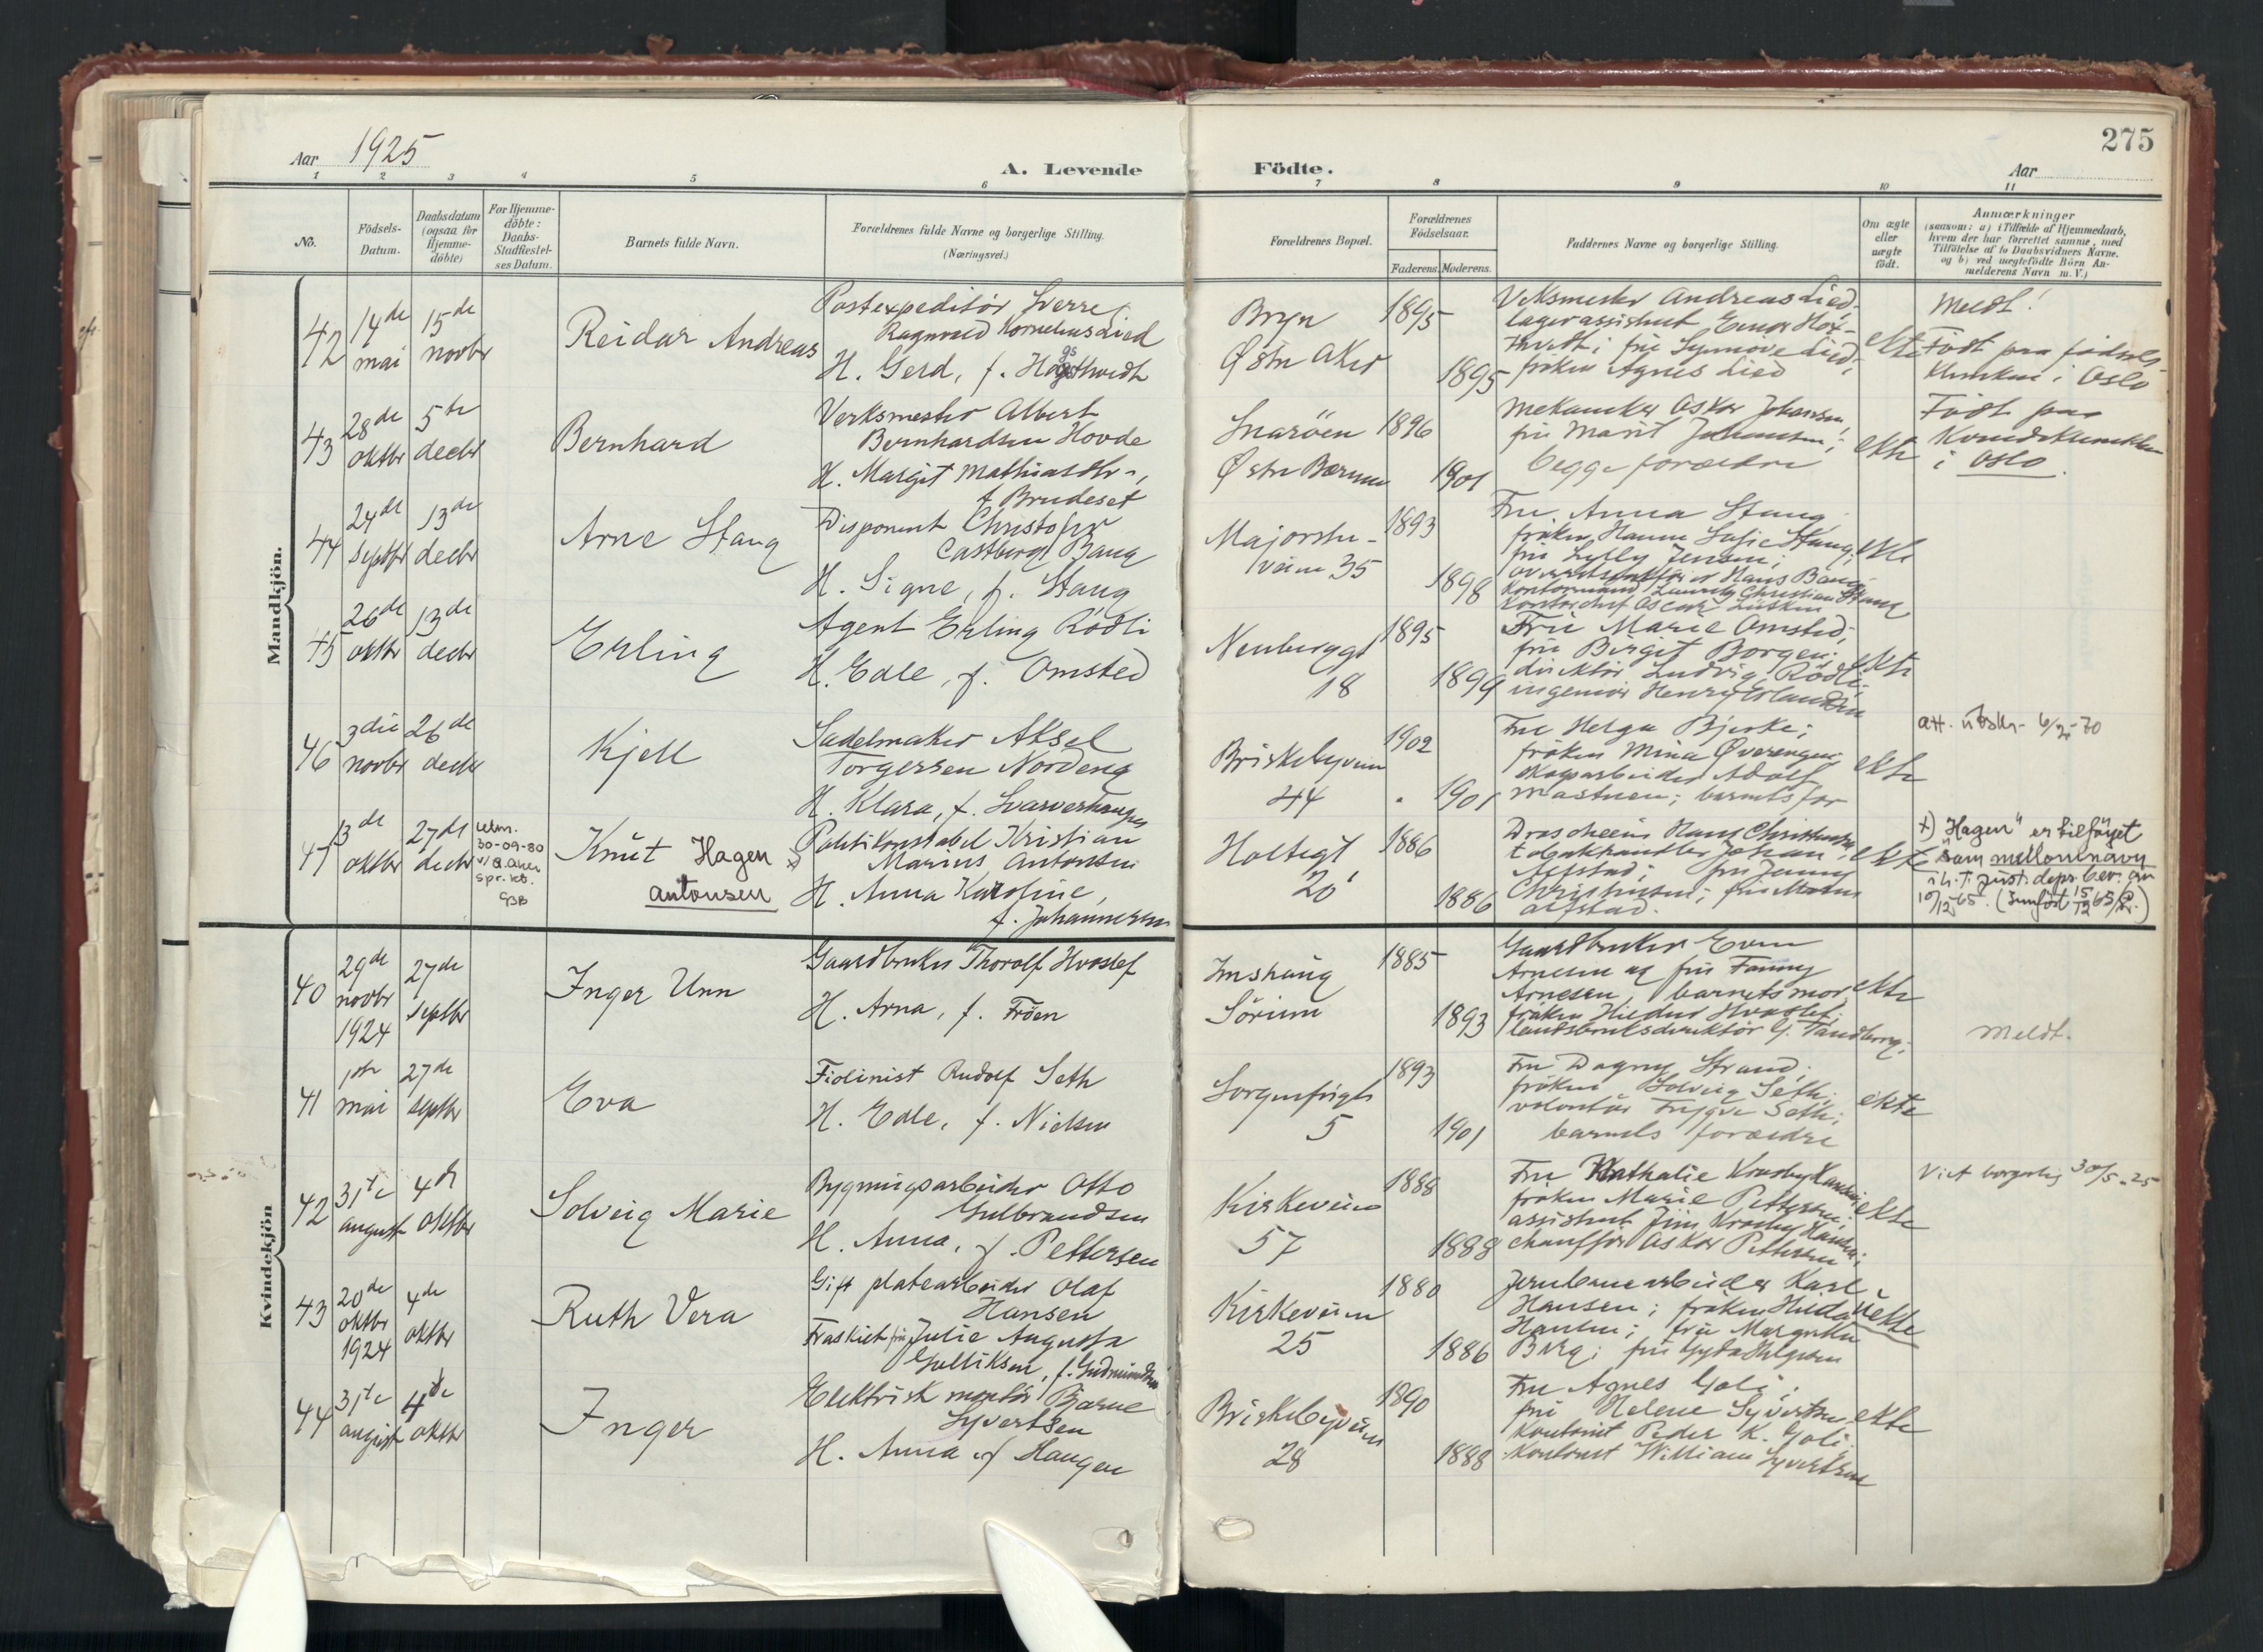 275
Aar 1925
A. Levende
Födte.
Aar
1 2 3 4 5 6 7 8 9 10 11
No.
Födsels-
Datum.
Daabsdatum
(ogsaa for
Hjemme-
döbte)
For Hjemme-
döbte:
Daabs-
Stadfæstel-
ses Datum.
Barnets fulde Navn.
Forældrenes fulde Navne og borgerlige Stilling.
(Næringsvei.)
Forældrenes Bopæl.
Forældrenes
Födselsaar.
Faderens. Moderens.
Faddernes Navne og borgerlige Stilling.
Om ægte
eller
uægte
födt.
Anmærkninger
(saasom: a) i Tilfælde af Hjemmedaab,
hvem der har forrettet samme, med
Tilföielse af to Daabsvidners Navne.
og b) ved uægtefödte Börn An-
melderens Navn m. V.)
Mandkjön.
42
14de
mai
15de
novbr
Reidar Andreas
Postexpeditör Sverre
Ragnvald Kornelius Lied
H. Gerd, f.
Bryn
Östre Aker
1895
1895
Verksmester Andreas Lied,
lagerassistent Einar
fru Synnove Lied;
fröken Agnes Lied
ekte
Meldt!
Födt paa födsels-
klinikken i Oslo
43
28de
oktbr
5te
decbr
Bernhard
Verksmester Albert
Bernhardsen Hovde
H. Margit Mathiasdtr.,
f. Brudeset
Snaröen
Östre Bærum
1896
1901
Mekaniker Oskar Johansen,
fru Marit Johansen;
begge forældre
ekte
Födt paa
Kvindeklinikken
i Oslo.
44
24de
septbr
13de
decbr
Arne Stang
Disponent Christofer
Castberg Bang
H. Signe, f. Stang
Majorstu-
veien 35
1893
1898
Fru Anna Stang,
fröken Hanna Sofie Stang;
fru Lylly Jensen;
Hans Bang
Kontormand Lauritz Christian Stang,
Kontorchef Oscar
ekte
45
26de
oktbr
13de
decbr
Erling
Agent Erling Rödli
H. Edle, f. Omsted
Neuberggt
18
1895
1899
Fru Marie Omsted;
fru Birgit Borgen;
direktör Ludvig Rödli;
ingeniör Henry Erlandsen
ekte
46
3die
novbr
26de
decbr
Kjell
Sadelmaker Aksel
Torgersen Nordeng
H. Klara, f. Svarverhaugen
Briskebyveien
44
1902
1901
Fru Helga Bjerke;
fröken Mina Överengen;
skogsarbeider Adolf
Mastuen; barnets far
ekte
att. utskr. 6/2-70
47
13de
oktbr
27de
decbr
utm.
30-09-80
v/ Ö. Aker
spr.kt.
GBB
Knut Hagen x)
Antonsen
Politikonstabel Kristian
Marius Antonsen
H. Anna Karoline,
f. Johannesen
Holtegt
20
1886
1886
Hans Christiansen,
tobakhandler Johan
Alfstad; fru Jenny
Christiansen; fru
Alfstad.
ekte
x) "Hagen" er tilföyet
som mellomnavn
i h. t. Just. deps. bev. av
10/12 65. (Innföst 15/12 65/)
Kvindekjön
40
29de
novbr
1924
27de
septbr
Inger Unn
Gaardbruker Thoralf Hvoslef
H. Arna, f. Fröen
Imshaug
Sörum
1885
1893
Gaardbruker Even
Arnesen og fru Fanny
Arnesen, barnets mor,
fröken Hvoslef;
landbruksdirektör G. Tandberg.
ekte
Meldt.
41
1ste
mai
27de
septbr
Eva
Fiolinist Rudolf Seth
H. Edle, f. Nielsen
Sorgenfrigt
5
1893
1901
Fru Dagny Strand;
fröken Solveig Seth;
volontör Trygve Seth;
barnets forældre
ekte
42
31te
august
4de
oktbr
Solveig Marie
Bygningsarbeider Otto
Gulbrandsen
H. Anna, f. Pettersen
Kirkeveien
57
1888
1888
Fru Nathalie Krosby Hansen;
fröken Marie Pettersen;
assistent Jim Krosby Hansen;
chaufför Oskar Pettersen
ekte
Viet borgerlig 30/5-25
43
20de
oktbr
1924
4de
oktbr
Ruth Vera
Gift platearbeider Olaf
Hansen
Fraskilt fru Julie Augusta
Gulliksen, f. Gudmundsen
Kirkeveien
25
1880
1886
Jernbanearbeider Karl
Hansen; fröken Hilda
Hansen; fru Margrethe
Berg; fru Gyda Helgesen
uekte
44
31te
august
4de
oktbr
Inger
Elektrisk montör Bjarne
Syvertsen
H. Anna f. Haugen
Briskebyveien
28
1890
1888
Fru Agnes Goli;
fru Helene Syvertsen
Kontorist Peder K. Goli;
Kontorist William Syvertsen
ekte